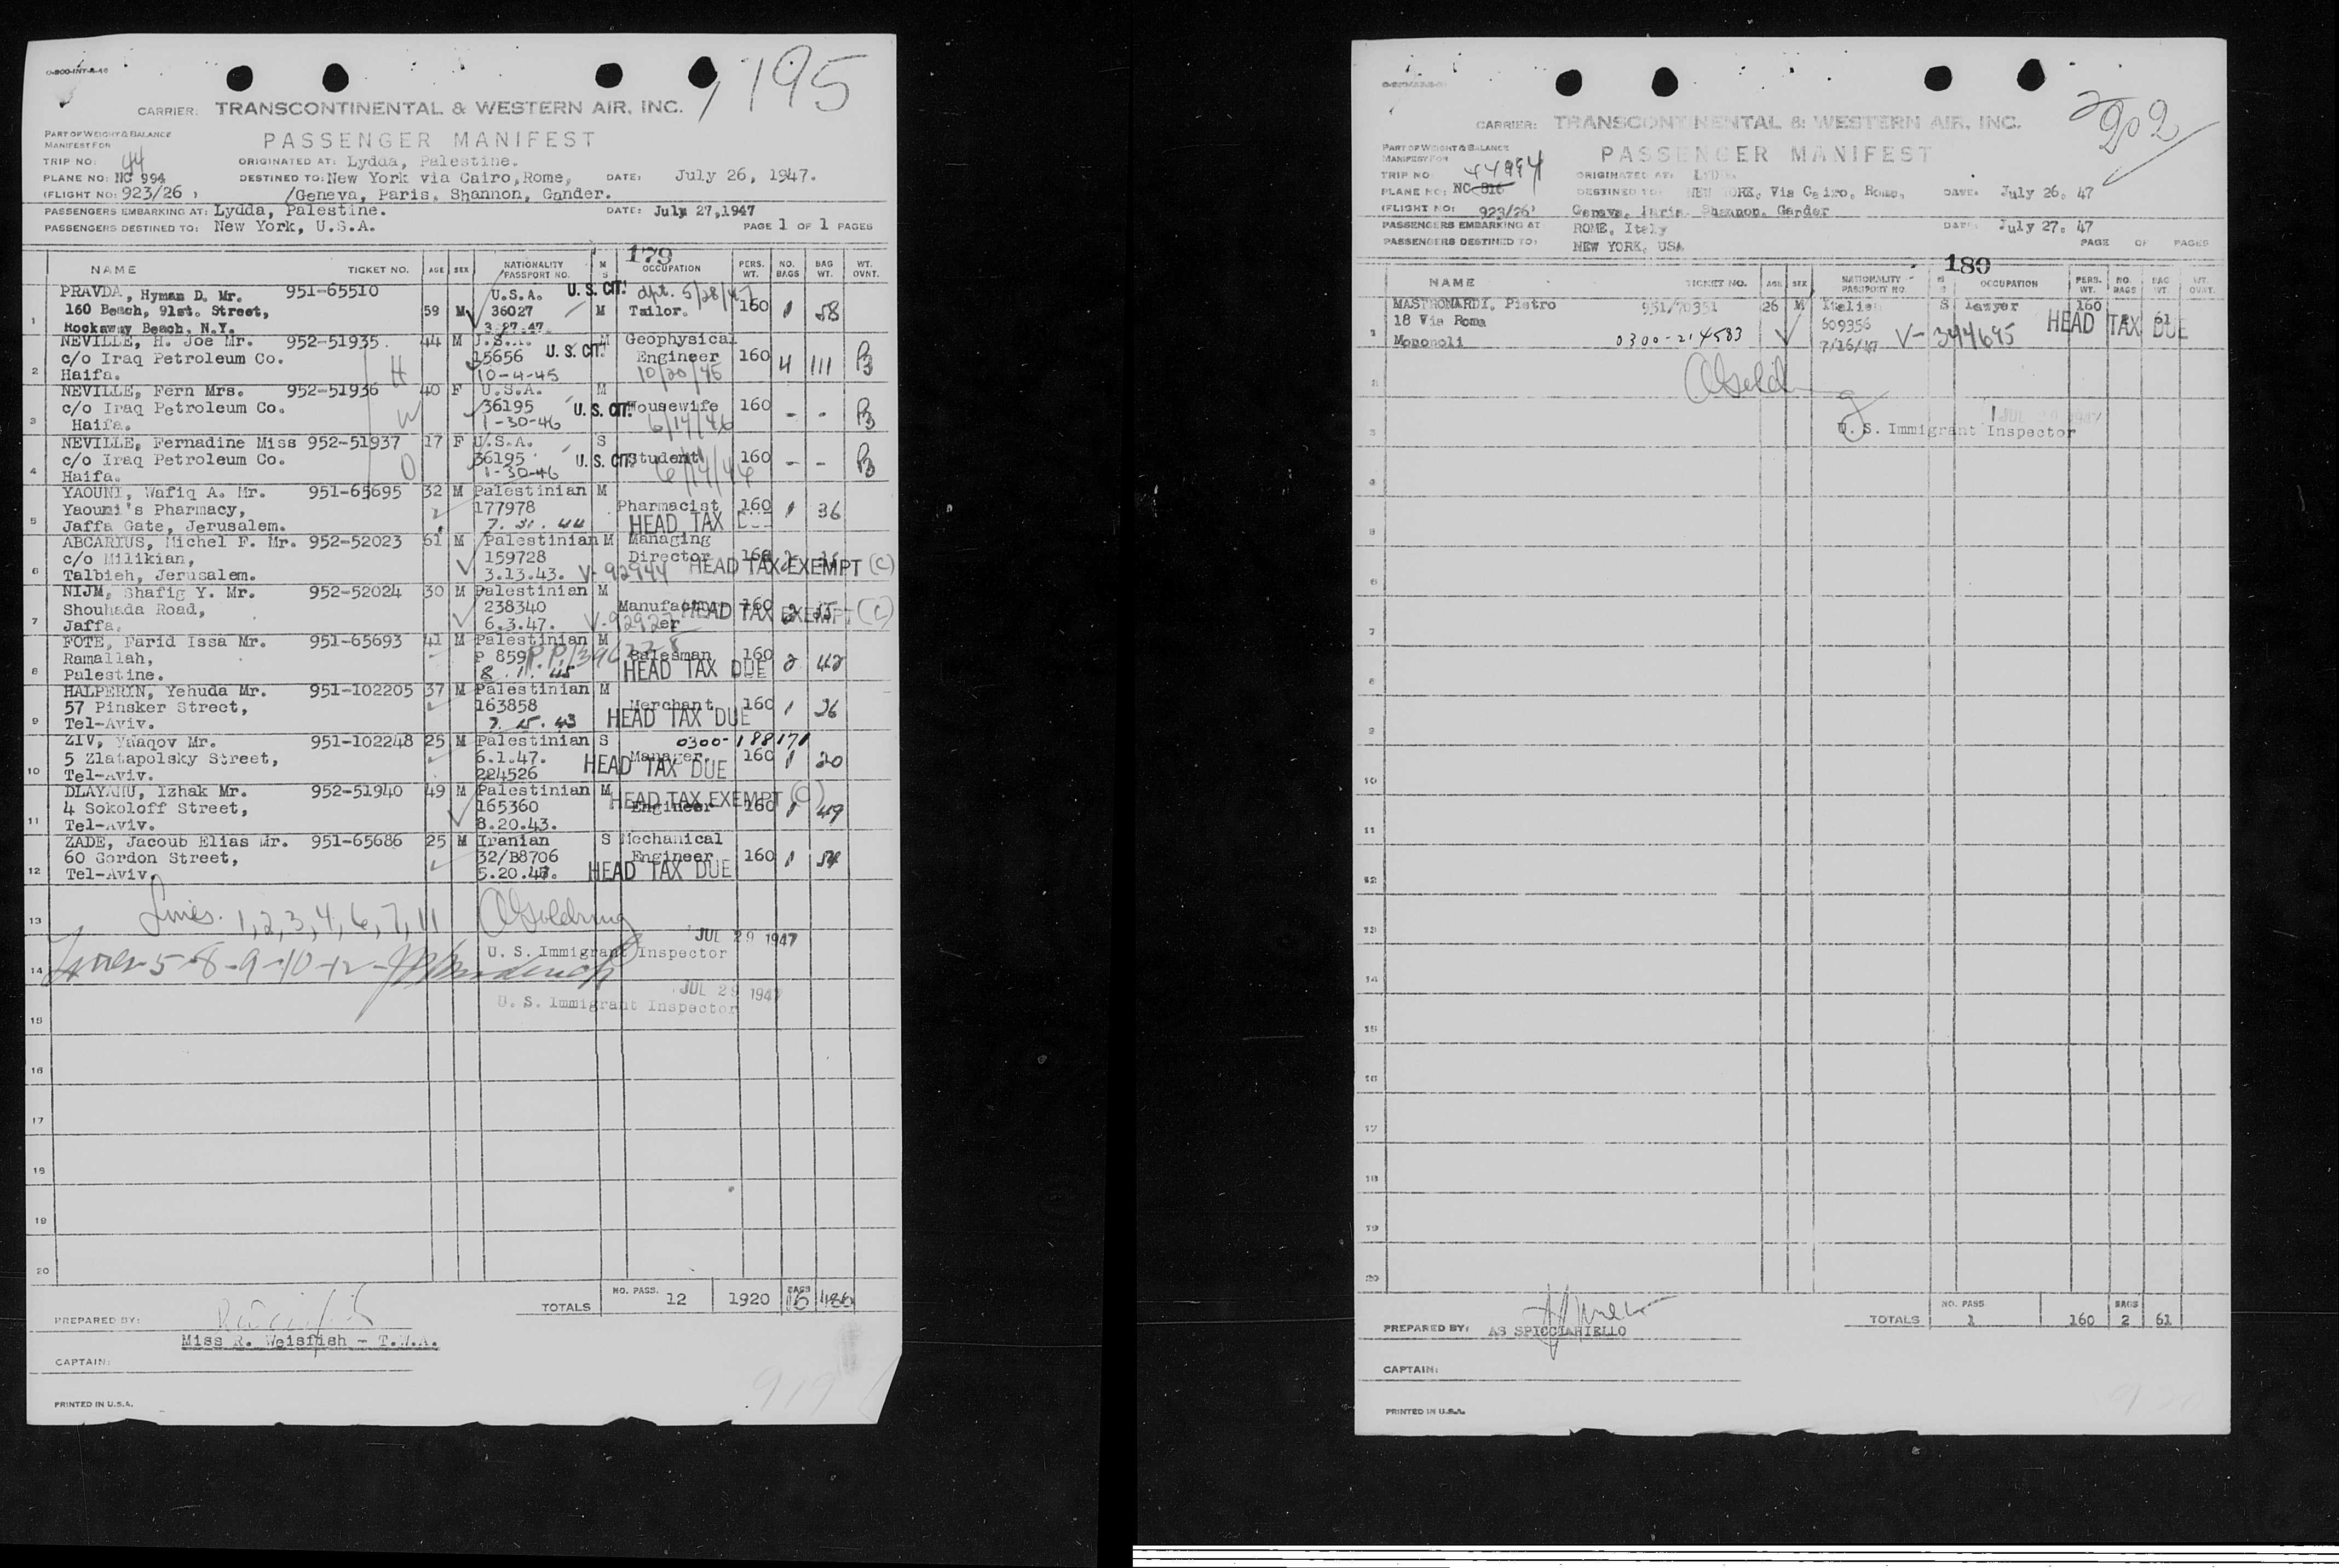 O-800-INT-R-46
1795
CARRIER: TRANSCONTINENTAL & WESTERN AIR, INC.
PART OF WEIGHT & BALANCE
MANIFEST FOR
PASSENGER MANIFEST
TRIP NO: 44
ORIGINATED AT: Lydda, Palestine.
PLANE NO: NC 994
DESTINED TO: New York via Cairo, Rome, DATE: July 26, 1947.
(FLIGHT NO: 923/26 ) /Geneva, Paris, Shannon, Gander.
PASSENGERS EMBARKING AT: Lydda, Palestine. DATE: July 27,1947
PASSENGERS DESTINED TO: New York, U.S.A. PAGE 1 OF 1 PAGES
179
NAME TICKET NO. AGE SEX NATIONALITY PASSPORT NO. M S OCCUPATION PERS. WT. NO. BAGS BAG WT. WT. OVNT.
PRAVDA, Hyman D. Mr. 951-65510 U.S.A. U.S. CIT. dpt. 5/28/47
1 160 Beach, 91st. Street, 59 M 36027 M Tailor. 160 1 58
Rockaway Beach, N.Y. 3.27.47.
NEVILLE, H. Joe Mr. 952-51935. 44 M U.S.A. M Geophysical
2 c/o Iraq Petroleum Co. H 15656 U.S. CIT. Engineer 160 4 111
Haifa. 10-4-45 10/20/45
NEVILLE, Fern Mrs. 952-51936 40 F U.S.A. M
3 c/o Iraq Petroleum Co. W 36195 U.S. CIT. Housewife 160 - -
Haifa. 1-30-46 6/14/46
NEVILLE, Fernadine Miss 952-51937 17 F U.S.A. S
4 c/o Iraq Petroleum Co. D 36195 U.S. CIT. Student 160 - -
Haifa. 1-30-46 6/14/46
YAOUNI, Wafiq A. Mr. 951-65695 32 M Palestinian M
5 Yaouni's Pharmacy, 177978 Pharmacist 160 1 36
Jaffa Gate, Jerusalem. 7. 31. 44 HEAD TAX
ABCARIUS, Michel F. Mr. 952-52023 61 M Palestinian M Managing
6 c/o Milikian, 159728 Director 160 2
Talbieh, Jerusalem. 3.13.43. V-92944 HEAD TAX EXEMPT (C)
NIJM, Shafig Y. Mr. 952-52024 30 M Palestinian M
7 Shouhada Road, 238340 Manufacturer 160 2 HEAD TAX EXEMPT (C)
Jaffa. 6.3.47.
FOTE, Farid Issa Mr. 951-65693 41 M Palestinian M
8 Ramallah, P 859 Salesman 160 2 42
Palestine. 8. 1. 45 HEAD TAX DUE
HALPERIN, Yehuda Mr. 951-102205 37 M Palestinian M
9 57 Pinsker Street, 163858 Merchant 160 1 26
Tel-Aviv. 7. 15. 43 HEAD TAX DUE
ZIV, Yaaqov Mr. 951-102248 25 M Palestinian S 0300-188171
10 5 Zlatapolsky Street, 6.1.47. Manager. 160 1 20
Tel-Aviv. 224526 HEAD TAX DUE
DLAYAHU, Izhak Mr. 952-51940 49 M Palestinian M HEAD TAX EXEMPT (C)
11 4 Sokoloff Street, 165360 Engineer 160 1 49
Tel-Aviv. 8.20.43.
ZADE, Jacoub Elias Mr. 951-65686 25 M Iranian S Mechanical
12 60 Gordon Street, 32/B8706 Engineer 160 1 54
Tel-Aviv. 5.20.47. HEAD TAX DUE
13 Lines. 1,2,3,4,6,7,11 Goldring
JUL 29 1947
U. S. Immigrant Inspector
14 Lines-5-8-9-10-12-
JUL 29 1947
U. S. Immigrant Inspector
15
16
17
18
19
20
TOTALS NO. PASS. 12 1920 BAGS 16 486
PREPARED BY:
Miss R. Weisfish - T.W.A.
CAPTAIN:
919
PRINTED IN U.S.A.
2902
CARRIER: TRANSCONTINENTAL & WESTERN AIR, INC.
PART OF WEIGHT & BALANCE
MANIFEST FOR
PASSENGER MANIFEST
TRIP NO: 44 994 ORIGINATED AT:
PLANE NO: NC 816 DESTINED TO: NEW YORK, Via Cairo, Rome, DATE: July 26, 47
(FLIGHT NO: 923/26) Geneva, Paris, Shannon, Gander
PASSENGERS EMBARKING AT ROME, Italy DATE: July 27, 47
PASSENGERS DESTINED TO: NEW YORK, USA PAGE OF PAGES
180
NAME TICKET NO. AGE SEX NATIONALITY PASSPORT NO. M S OCCUPATION PERS. WT. NO. BAGS BAG WT. WT. OVNT.
MASTRONARDI, Pietro 951/70351 26 M Italian S lawyer 160
18 Via Roma 509356 2 61 HEAD TAX DUE
1 Monopoli 0300-214583 7/16/47 V-344695
2 Goldring
JUL 29 1947
3 U. S. Immigrant Inspector
4
5
6
7
8
9
10
11
12
13
14
15
16
17
18
19
20
TOTALS NO. PASS. 1 160 BAGS 2 61
PREPARED BY: AS SPICCIARIELLO
CAPTAIN:
PRINTED IN U.S.A.